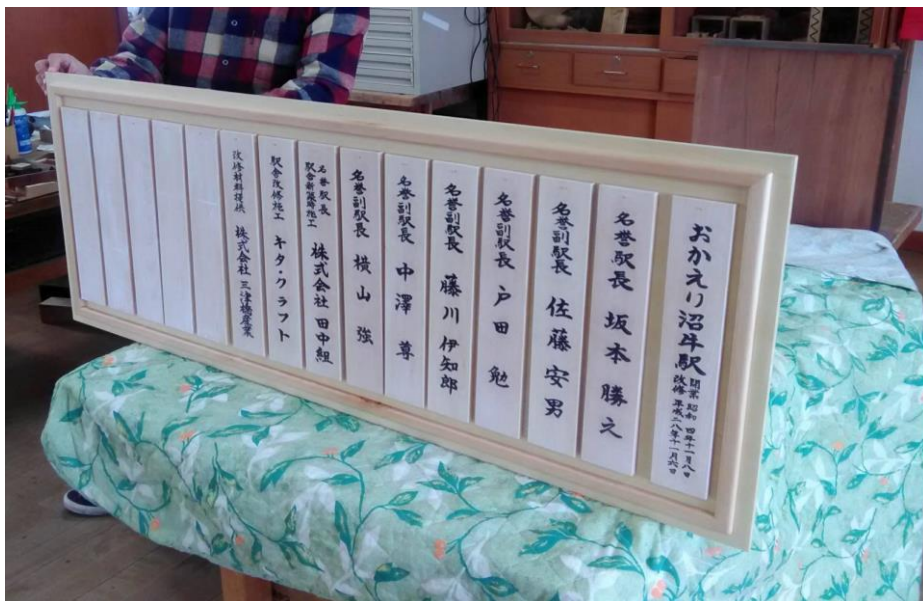 おかえり沼牛駅
開業 昭和 四年十一月八日
改修 平成二八年十一月六日
名誉駅長 坂本勝之
名誉副駅長 佐藤安男
名誉副駅長 戸田勉
名誉副駅長 藤川伊知郎
名誉副駅長 中澤尊
名誉副駅長 横山強
名誉駅長
駅舎新築時施工 株式会社 田中組
駅舎改修施工 キタ・クラフト
改修材料提供 株式会社 三津橋産業